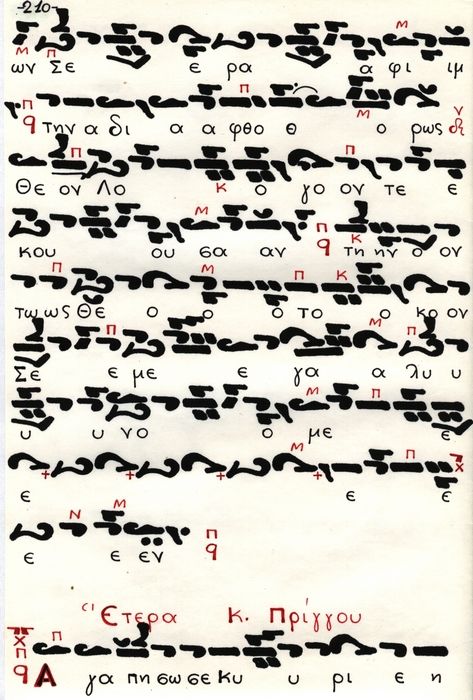 -210-
ων Σε ε ρα α φι ιμ
την α δι α α φθο θ ο ρως
Θε ον Λο κ ο γο ον τε ε
κου ου σα αν τη ην ο ον
τω ως Θε ο ο ο το ο κο ον
Σε ε με ε γα α λυ υ
υ υ νο ο με ε
ε ε ε
ε ε εν
Έτερα Κ. Πρίγγου
Α γα πη σω σε Κυ υ ρι ε η